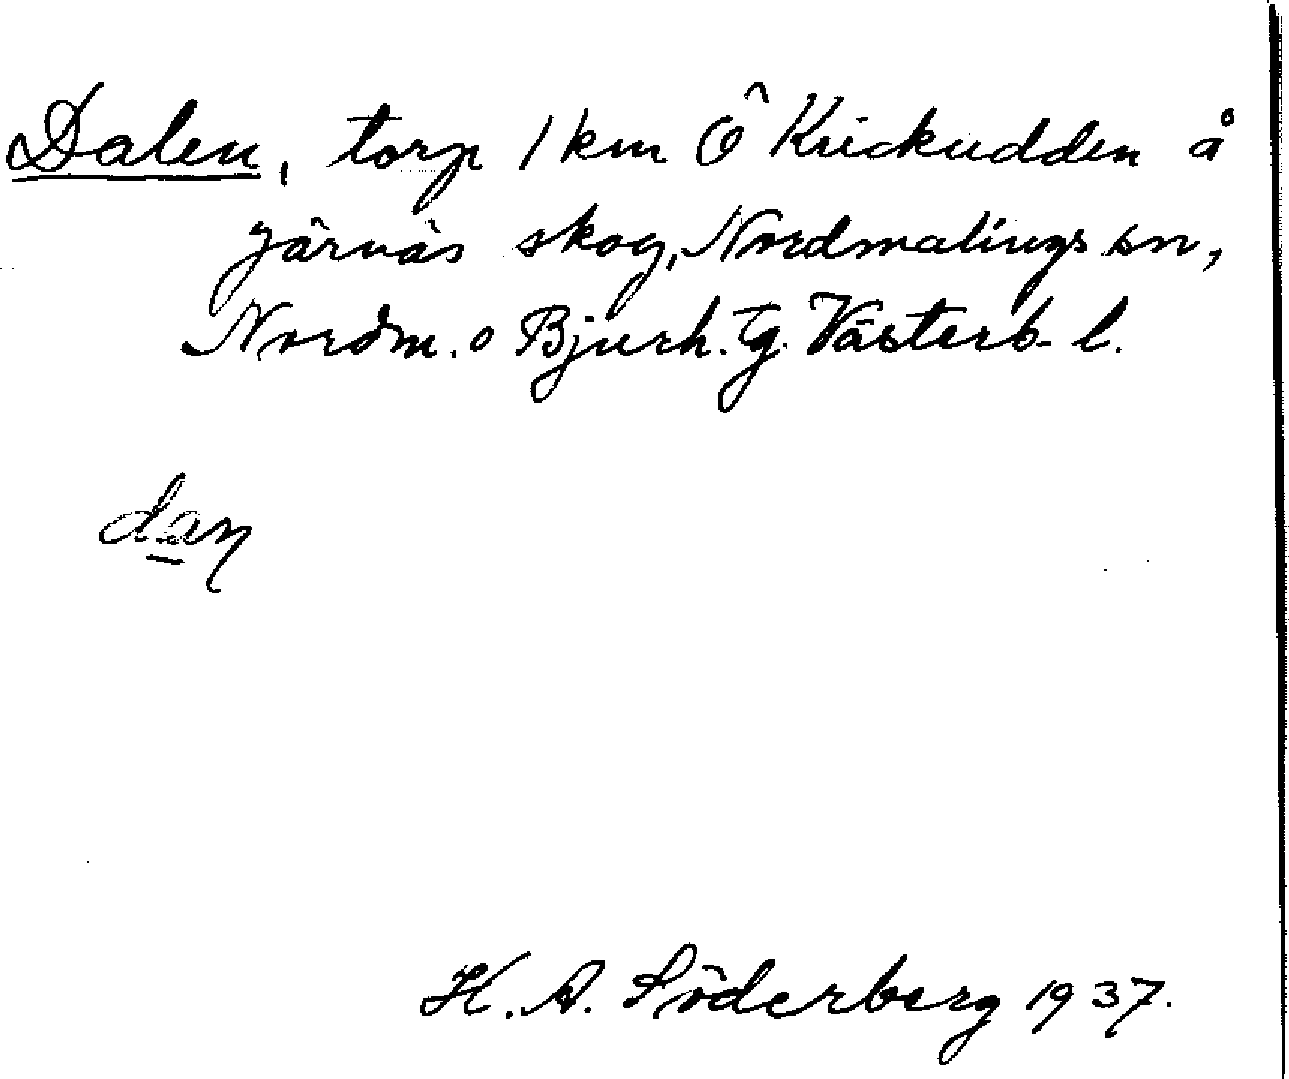 Dalen, torp 1 km Ö Krickudden å
Järnäs skog, Nordmalings sn,
Nordm. o Bjurh. tg. Västerb. l.
dan
H. A. Söderberg 1937.